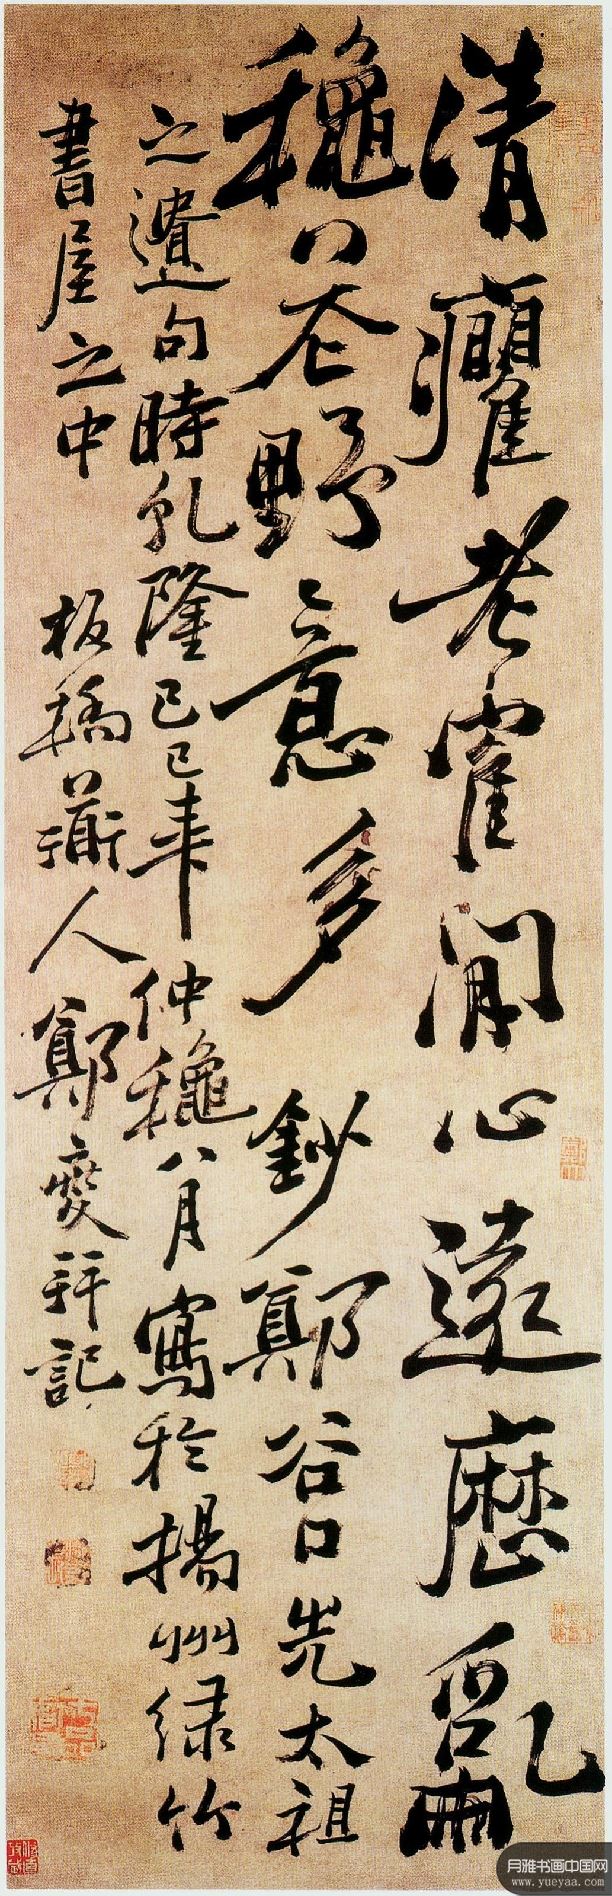 清癯老寉閒心遠歷亂
龝花野意多 鈔鄭谷口先太祖
之遺句時乾隆己巳年仲龝八月寫於揚州緑竹
書屋之中 板橋衜人鄭燮拜記
月雅书画中国网
www.yueyaa.com